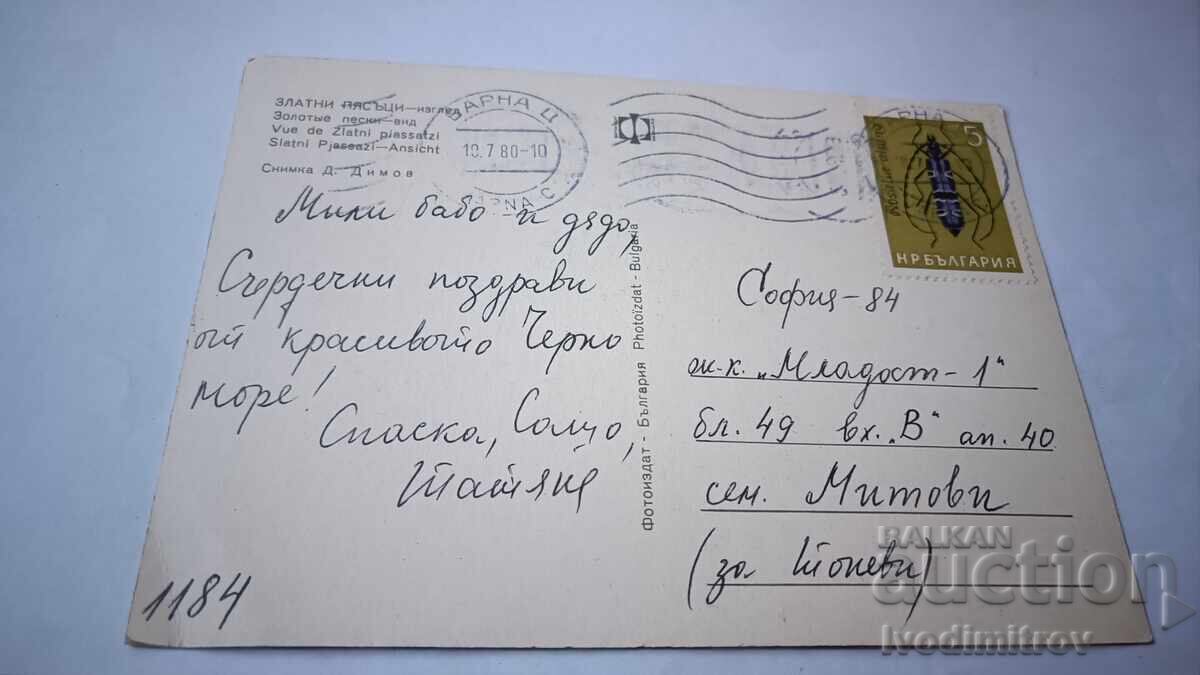 ЗЛАТНИ ПЯСЪЦИ—изглед
Золотые пески—вид
Vue de Zlatni piassatzi
Slatni Pjasazi—Ansicht
Снимка Д. Димов
ВАРНА Ц
10.7.80-10
Мили бабо и дядо,
Сърдечни поздрави
от красивото Черно
море!
Спаска, Солчо,
Татяна
1184
Фотоиздат - България Photoizdat - Bulgaria
5
НР БЪЛГАРИЯ
София-84
ж.к. „Младост-1"
бл. 49 вх. „В" ап. 40
сем. Митови
(за Тоневи)
BALKAN
auction
Ivodimitrov